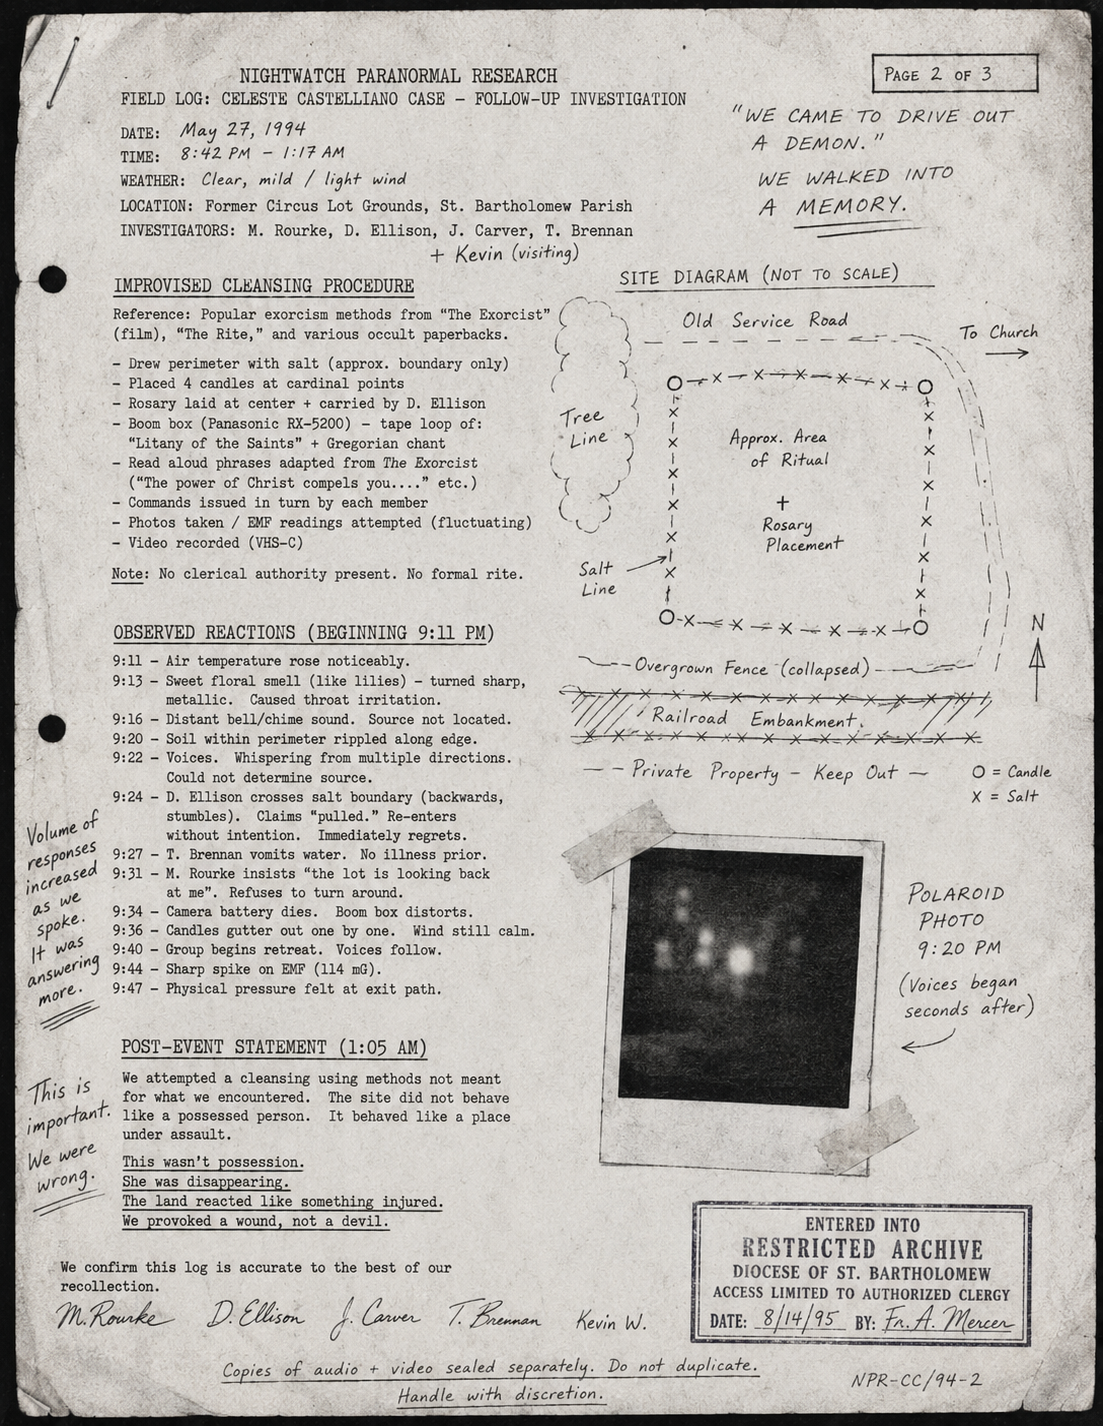 NIGHTWATCH PARANORMAL RESEARCH
FIELD LOG: CELESTE CASTELLIANO CASE – FOLLOW-UP INVESTIGATION
PAGE 2 OF 3
DATE: May 27, 1994
TIME: 8:42 PM – 1:17 AM
WEATHER: Clear, mild / light wind
LOCATION: Former Circus Lot Grounds, St. Bartholomew Parish
INVESTIGATORS: M. Rourke, D. Ellison, J. Carver, T. Brennan
+ Kevin (visiting)
"WE CAME TO DRIVE OUT
A DEMON."
WE WALKED INTO
A MEMORY.
IMPROVISED CLEANSING PROCEDURE
Reference: Popular exorcism methods from "The Exorcist"
(film), "The Rite," and various occult paperbacks.
– Drew perimeter with salt (approx. boundary only)
– Placed 4 candles at cardinal points
– Rosary laid at center + carried by D. Ellison
– Boom box (Panasonic RX-5200) – tape loop of:
"Litany of the Saints" + Gregorian chant
– Read aloud phrases adapted from The Exorcist
("The power of Christ compels you...." etc.)
– Commands issued in turn by each member
– Photos taken / EMF readings attempted (fluctuating)
– Video recorded (VHS-C)
Note: No clerical authority present. No formal rite.
SITE DIAGRAM (NOT TO SCALE)
Old Service Road
To Church
Tree
Line
Approx. Area
of Ritual
Rosary
Placement
Salt
Line
N
Overgrown Fence (collapsed)
Railroad Embankment.
Private Property – Keep Out –
O = Candle
X = Salt
OBSERVED REACTIONS (BEGINNING 9:11 PM)
9:11 – Air temperature rose noticeably.
9:13 – Sweet floral smell (like lilies) – turned sharp,
metallic. Caused throat irritation.
9:16 – Distant bell/chime sound. Source not located.
9:20 – Soil within perimeter rippled along edge.
9:22 – Voices. Whispering from multiple directions.
Could not determine source.
9:24 – D. Ellison crosses salt boundary (backwards,
stumbles). Claims "pulled." Re-enters
without intention. Immediately regrets.
9:27 – T. Brennan vomits water. No illness prior.
9:31 – M. Rourke insists "the lot is looking back
at me". Refuses to turn around.
9:34 – Camera battery dies. Boom box distorts.
9:36 – Candles gutter out one by one. Wind still calm.
9:40 – Group begins retreat. Voices follow.
9:44 – Sharp spike on EMF (114 mG).
9:47 – Physical pressure felt at exit path.
Volume of
responses
increased
as we
spoke.
It was
answering
more.
POLAROID
PHOTO
9:20 PM
(Voices began
seconds after)
POST-EVENT STATEMENT (1:05 AM)
We attempted a cleansing using methods not meant
for what we encountered. The site did not behave
like a possessed person. It behaved like a place
under assault.
This wasn't possession.
She was disappearing.
The land reacted like something injured.
We provoked a wound, not a devil.
This is
important.
We were
wrong.
We confirm this log is accurate to the best of our
recollection.
M. Rourke D. Ellison J. Carver T. Brennan Kevin W.
ENTERED INTO
RESTRICTED ARCHIVE
DIOCESE OF ST. BARTHOLOMEW
ACCESS LIMITED TO AUTHORIZED CLERGY
DATE: 8/14/95 BY: Fr. A. Mercer
Copies of audio + video sealed separately. Do not duplicate.
Handle with discretion.
NPR-CC/94-2